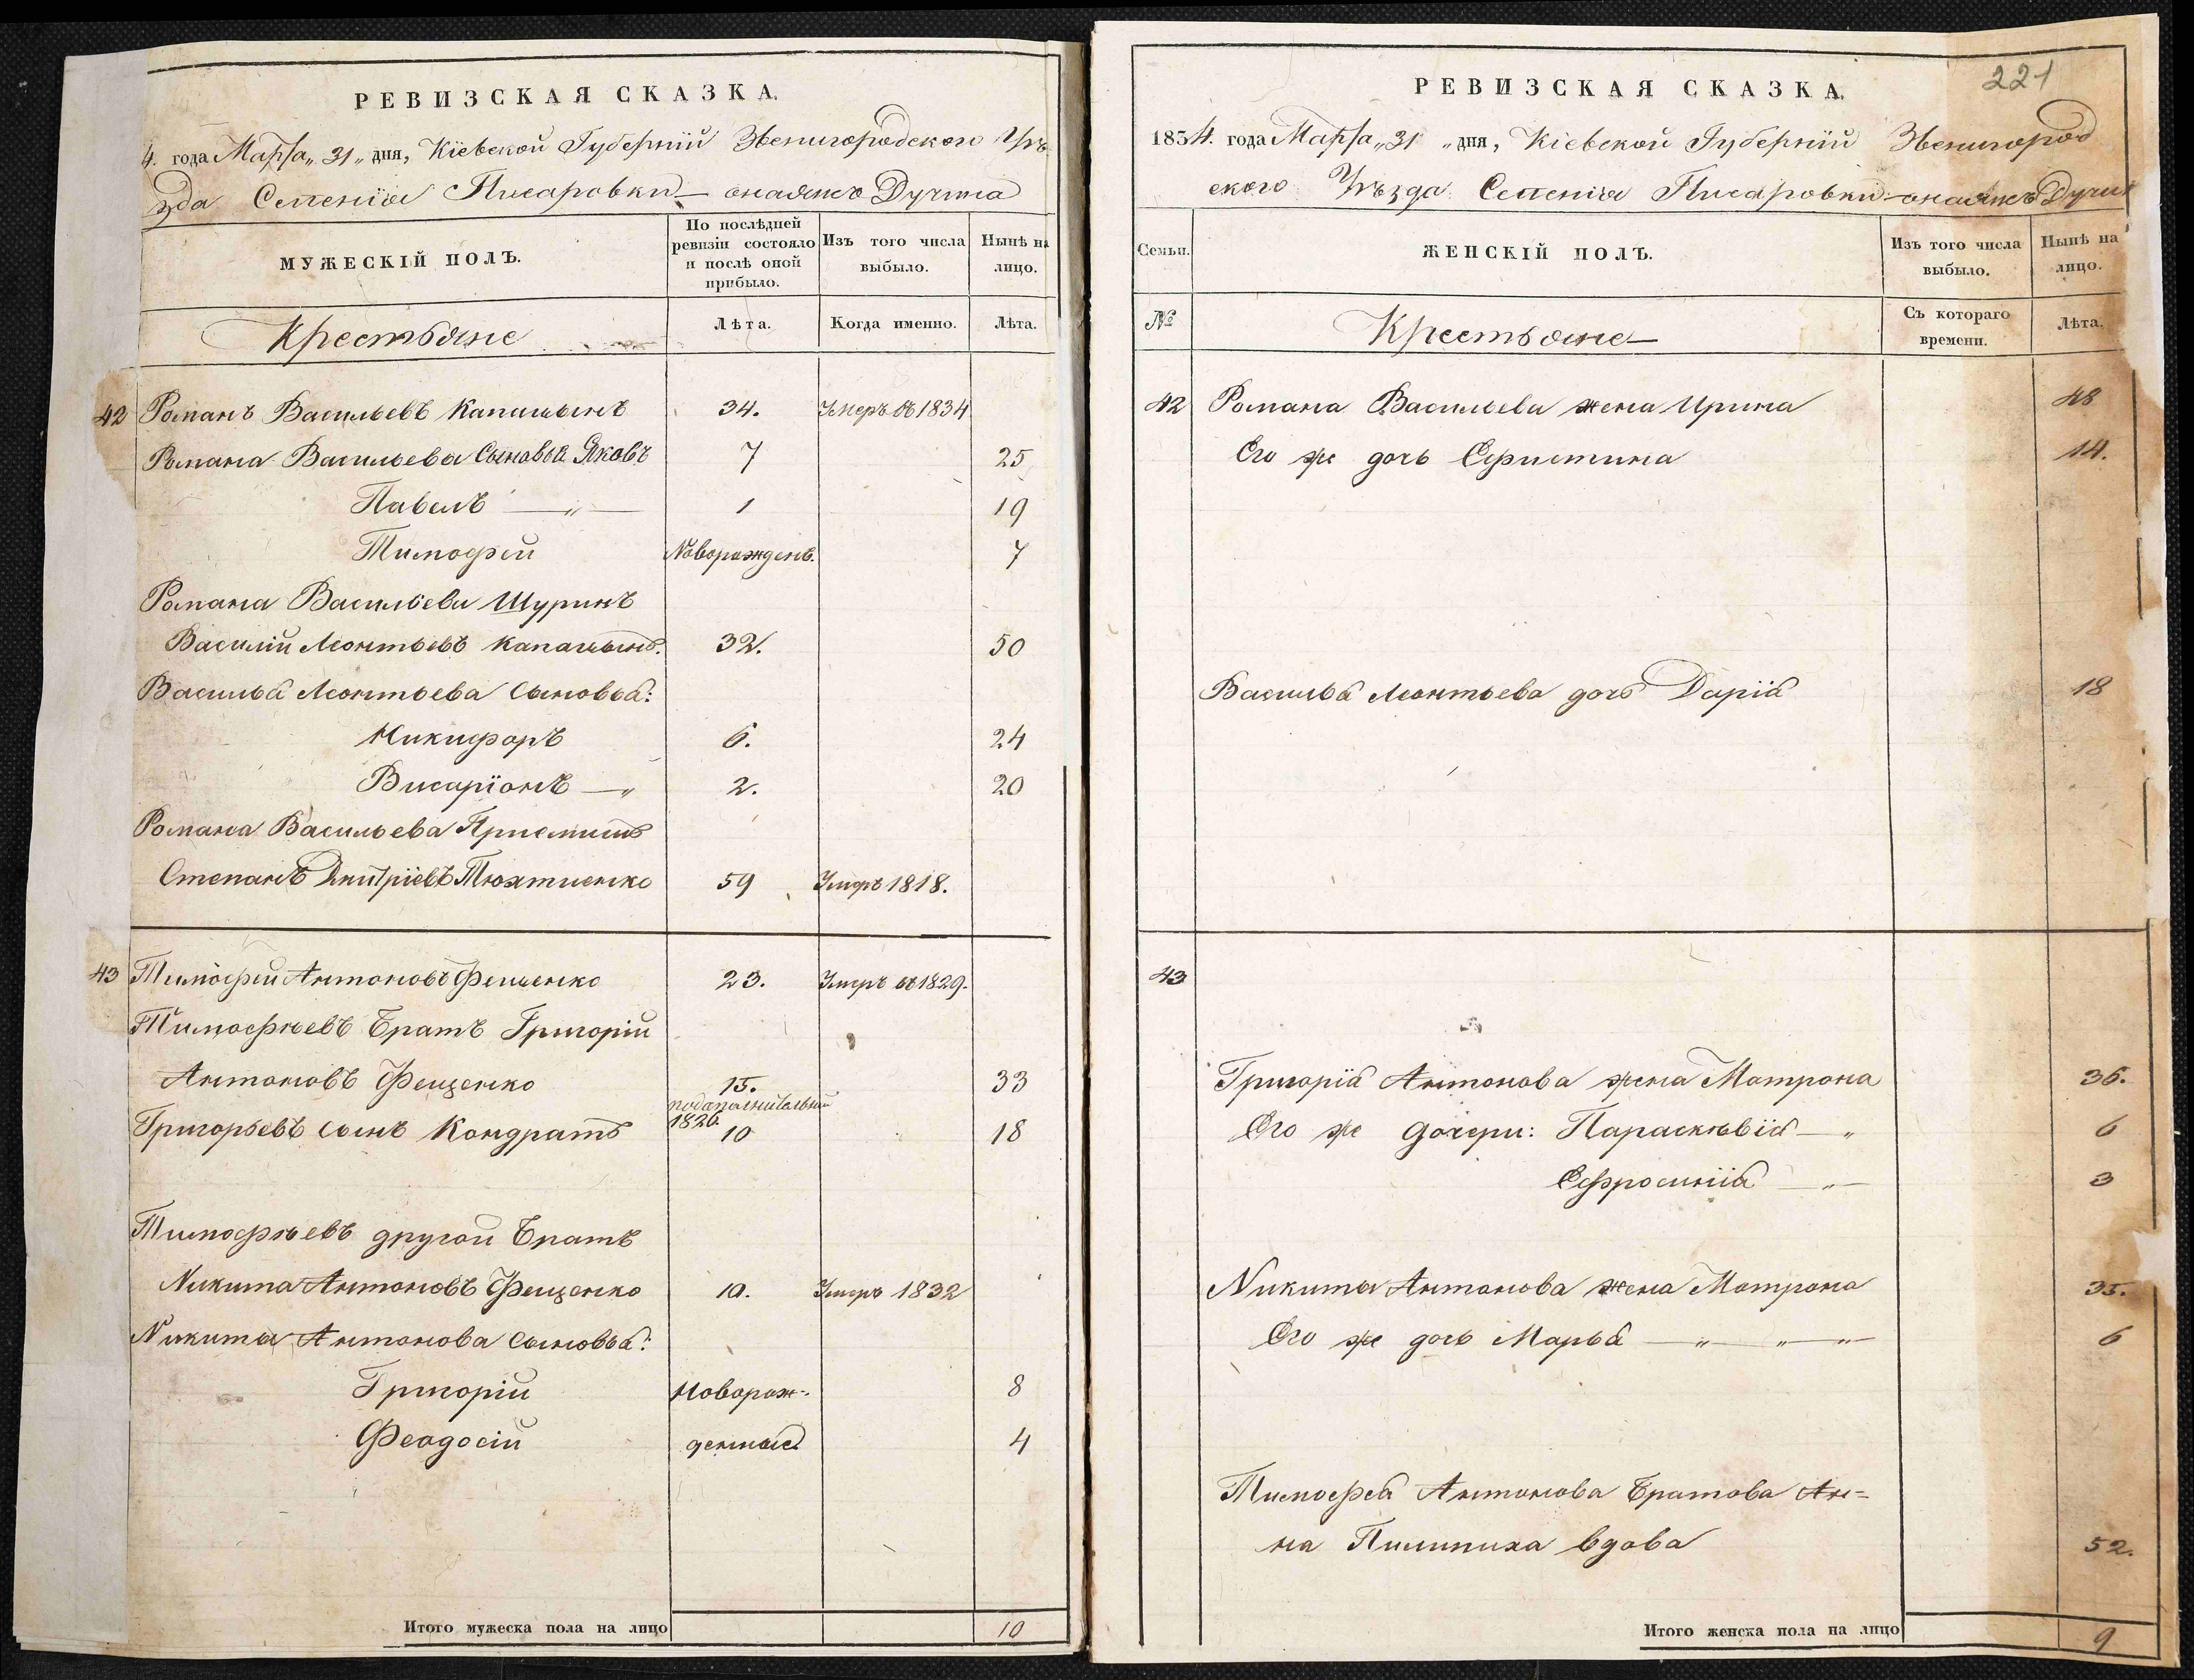 РЕВИЗСКАЯ СКАЗКА.
4. года Марта „31„ дня, Кіевской Губерніи Звенигородского Уѣ
зда Селенія Писаровки онаяже Дучина
МУЖЕСКІЙ ПОЛЪ.
По послѣдней ревизіи состояло и послѣ оной прибыло.
Изъ того числа выбыло.
Нынѣ на лицо.
Крестьяне
Лѣта.
Когда именно.
Лѣта.
42 Романъ Васильевъ 34. Умеръ въ 1834
Романа Васильева Сыновья Яковъ 7 25
Павелъ — „ — 1 19
Тимофей Новорожденъ. 7
Романа Васильева Шуринъ
Василій Леонтьевъ 32. 50
Василья Леонтьева Сыновья:
Никифоръ 6. 24
Висаріонъ — „ 2. 20
Романа Васильева Приемышъ
Степанъ Дмитріевъ 59 Умеръ 1818.
43 Тимофей Антоновъ Фещенко 23. Умеръ въ 1829.
Тимофѣевъ Братъ Григорій
Антоновъ Фещенко 15. 33
подополнительной
1826
Григорьевъ сынъ Кондратъ 10 18
Тимофѣевъ другой Братъ
Никита Антоновъ Фещенко 10. Умеръ 1832
Никиты Антонова Сыновья:
Григорій Новорож- 8
Феодосій денные 4
Итого мужеска пола на лицо 10
221
РЕВИЗСКАЯ СКАЗКА.
1834. года Марта „31 „ дня, Кіевской Губерніи Звенигород
ского Уѣзда Селенія Писаровки онаяже Дучи
Семьи.
ЖЕНСКІЙ ПОЛЪ.
Изъ того числа выбыло.
Нынѣ на лицо.
№
Крестьяне
Съ котораго времени.
Лѣта.
42 Романа Васильева жена Ирина 48
Его же дочь Ефистина 14.
Василья Леонтьева дочь Дарія 18
43
Григорія Антонова жена Матрона 36.
Его же дочери: Параскѣвія — „ 6
Ефросинія — „ — 3
Никиты Антонова жена Матрона 35.
Его же дочь Марья — „ — „ — „ — 6
Тимофея Антонова Братова Ан=
на Пилипиха вдова 52.
Итого женска пола на лицо 9